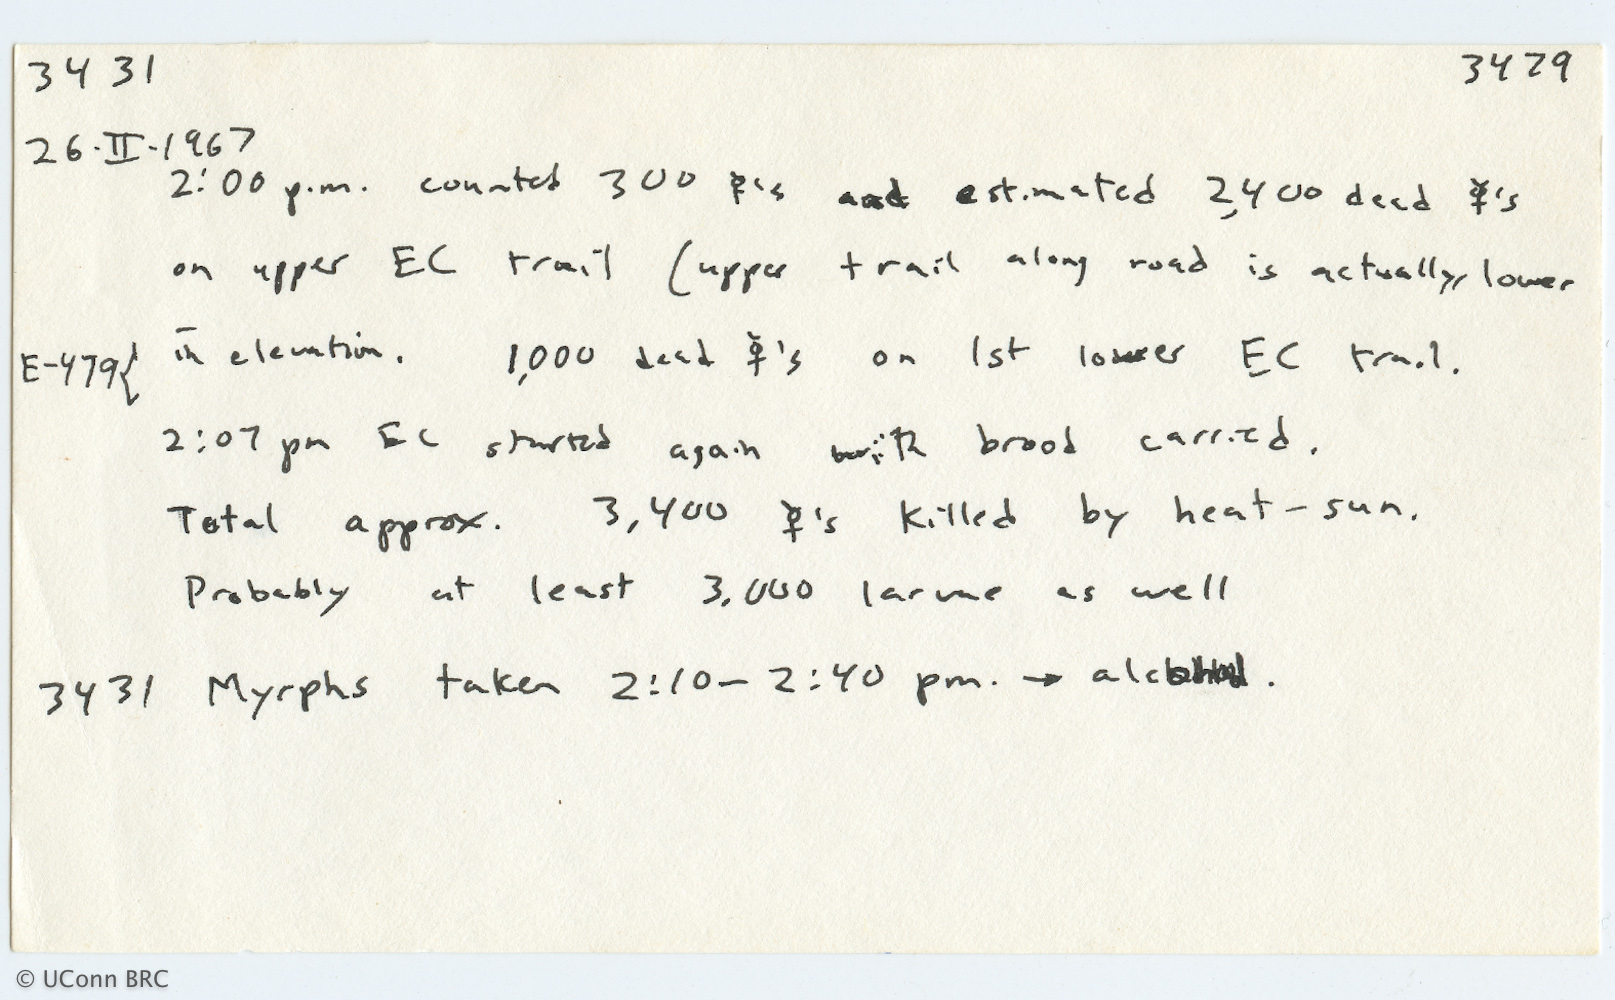 3431 3479
26·II·1967
2:00 p.m. counted 300 ☿'s and estimated 2,400 dead ☿'s
on upper EC trail (upper trail along road is actually lower
E-479{ in elevation. 1,000 dead ☿'s on 1st lower EC trail.
2:07 pm EC started again with brood carried.
Total approx. 3,400 ☿'s killed by heat-sun.
Probably at least 3,000 larvae as well
3431 Myrphs taken 2:10-2:40 pm. → alcohol.
© UConn BRC